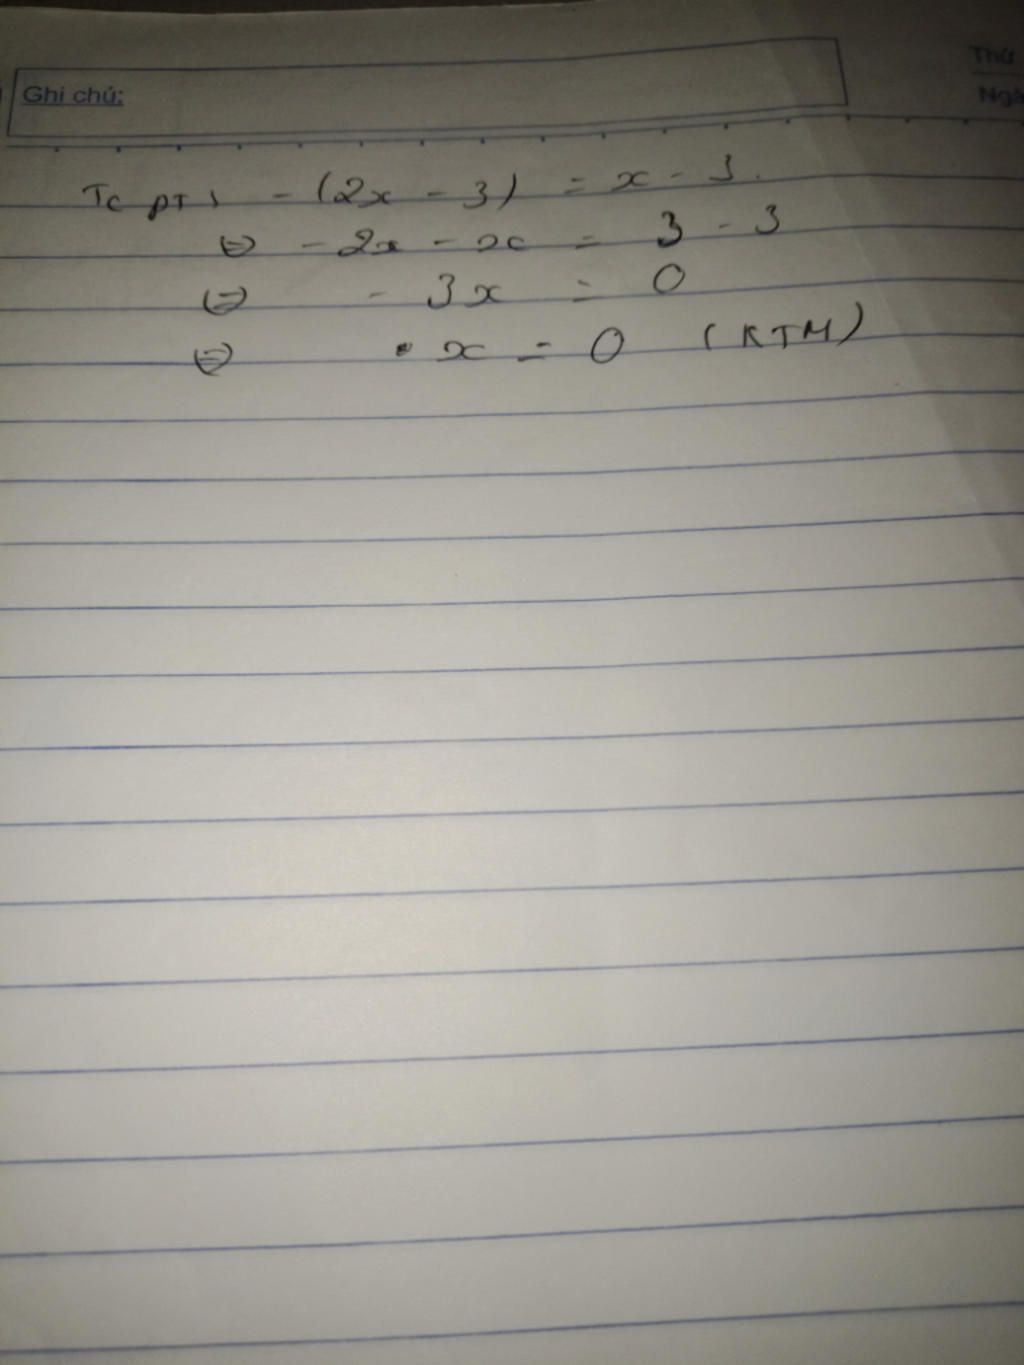 Thứ
Ghi chú:
Ngà
Tc PT: -(2x - 3) = x - 3.
⇔ -2x - x = 3 - 3
⇔ -3x = 0
⇔ x = 0 (KTM)